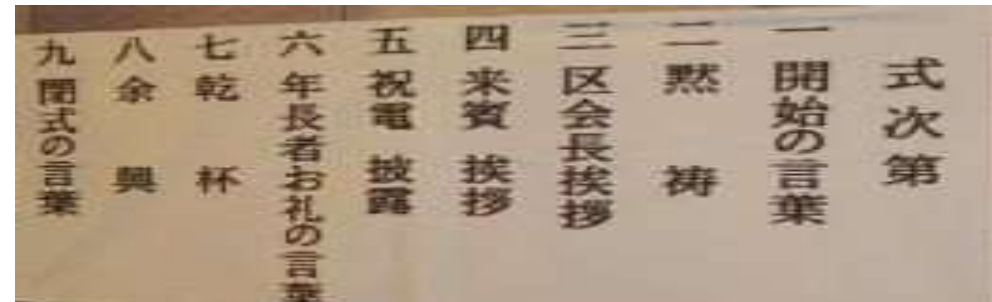 式次第
一 開始の言葉
二 黙 祷
三 区会長挨拶
四 来賓 挨拶
五 祝電 披露
六 年長者お礼の言葉
七 乾 杯
八 余 興
九 閉式の言葉